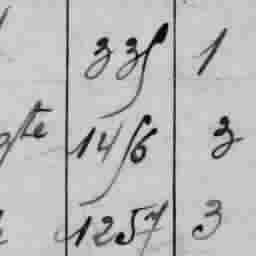 335 1
gte 1456 3
1257 3